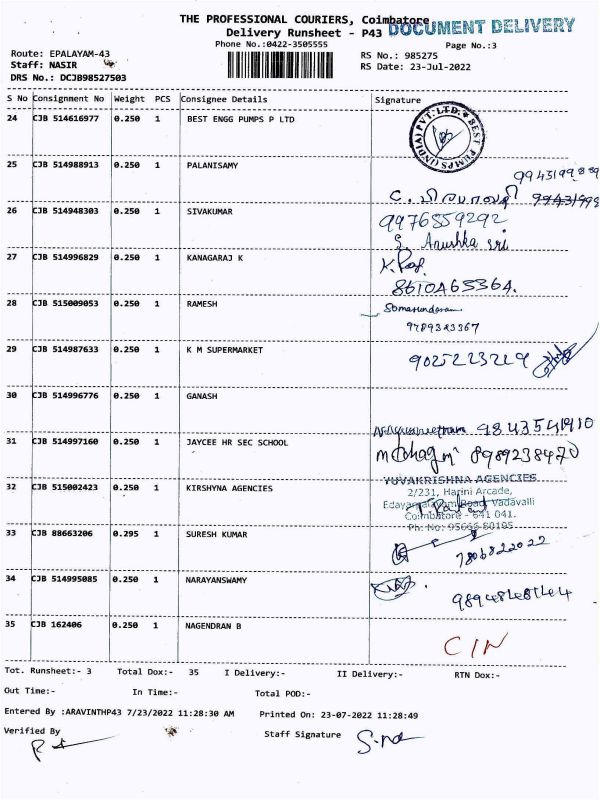 THE PROFESSIONAL COURIERS, Coimbatore
Delivery Runsheet - P43 DOCUMENT DELIVERY
Phone No.:0422-3505555 Page No.:3
Route: EPALAYAM-43 RS No.: 985275
Staff: NASIR RS Date: 23-Jul-2022
DRS No.: DCJB98527503
S No Consignment No Weight PCS Consignee Details Signature
24 CJB 514616977 0.250 1 BEST ENGG PUMPS P LTD
BEST PUMPS (INDIA) PVT. LTD.
25 CJB 514988913 0.250 1 PALANISAMY
26 CJB 514948303 0.250 1 SIVAKUMAR 9976559292
S. Anushka sri
27 CJB 514996829 0.250 1 KANAGARAJ K K.Raj
8610465364.
28 CJB 515009053 0.250 1 RAMESH Somasundaram
9789343367
29 CJB 514987633 0.250 1 K M SUPERMARKET 9025223219
30 CJB 514996776 0.250 1 GANASH
9843541910
31 CJB 514997160 0.250 1 JAYCEE HR SEC SCHOOL 8989238470
32 CJB 515002423 0.250 1 KIRSHYNA AGENCIES
YUVAKRISHNA AGENCIES
2/231, Harini Arcade,
Edayarpalayam Road, Vadavalli
Coimbatore - 641 041.
Ph: No: 95666 80105
33 CJB 88663206 0.295 1 SURESH KUMAR
7806822022
34 CJB 514995085 0.250 1 NARAYANSWAMY
35 CJB 162406 0.250 1 NAGENDRAN B
C/N
Tot. Runsheet:- 3 Total Dox:- 35 I Delivery:- II Delivery:- RTN Dox:-
Out Time:- In Time:- Total POD:-
Entered By :ARAVINTHP43 7/23/2022 11:28:30 AM Printed On: 23-07-2022 11:28:49
Verified By Staff Signature